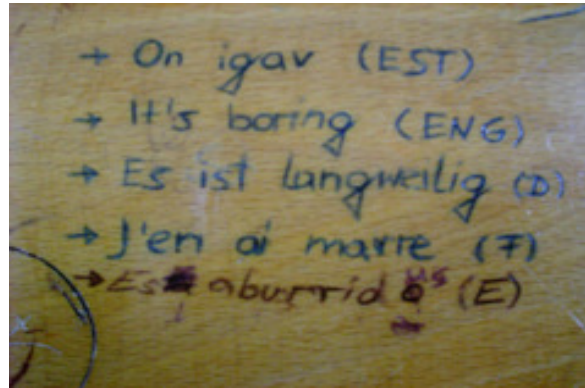 → On igav (EST)
→ It's boring (ENG)
→ Es ist langweilig (D)
→ J'en ai marre (F)
→ Es aburrido (E)